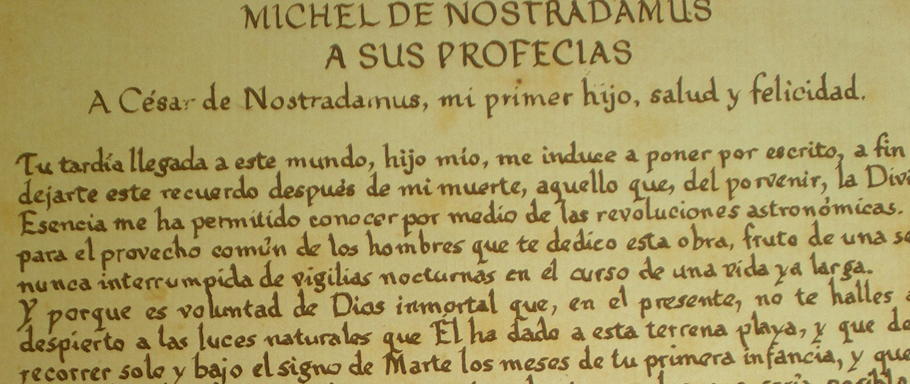 MICHEL DE NOSTRADAMUS
A SUS PROFECIAS
A César de Nostradamus, mi primer hijo, salud y felicidad.
Tu tardía llegada a este mundo, hijo mío, me induce a poner por escrito, a fin
dejarte este recuerdo después de mi muerte, aquello que, del porvenir, la Divi
Esencia me ha permitido conocer por medio de las revoluciones astronómicas.
para el provecho común de los hombres que te dedico esta obra, fruto de una se
nunca interrumpida de vigilias nocturnas en el curso de una vida ya larga.
Y porque es voluntad de Dios inmortal que, en el presente, no te halles
despierto a las luces naturales que Él ha dado a esta terrena playa, y que de
recorrer solo y bajo el signo de Marte los meses de tu primera infancia, y que